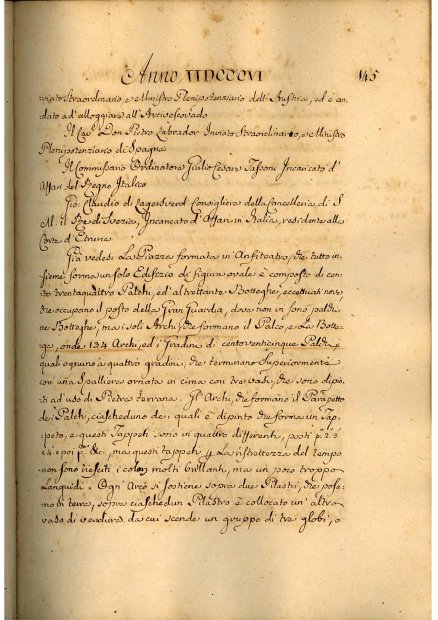 Anno MDCCCVI 145
viato Straordinario, e Ministro Plenipotenziario dell'Austria, ed è an-
dato ad'alloggiare all'Arcivescovado
Il Cav.e Don Pietro Labrador Inviato Straordinario, e Ministro
Plenipotenziario di Spagna
Il Commissario Ordinatore Giulio Cesare Tassoni Incaricato d'
Affari del Regno Italico
Gio. Claudio di Lagersverd Consigliere della Cancelleria di S.
M. il Re di Svezia, Incaricato d'Affari in Italia, residente alla
Corte d'Etruria
Già vedesi la Piazza formata in Anfiteatro, che tutto in-
sieme forma un solo Edifizio di figura ovale è composto di cen-
to trentaquattro Palchi, ed'altrettante Botteghe, eccettuati nove,
che occupano il posto della Gran Guardia, dove non vi sono palchi,
ne Botteghe, ma i soli Archi, che formano il Palco, e la Botte-
ga, onde 134 Archi, ed i Gradini di centoventicinque Palchi
quali ognuno à quattro gradini, che terminano Superiormente
con una Spalliera ornata in cima con tre vasi, che sono dipin-
ti ad'uso di Pietra terrana. Gl'Archi, che formano il Parapetto
de i Palchi, ciascheduno de i quali è dipinto che forma un Tap-
peto, e questi Tappeti sono in quadro differenti, posti p. 2. 3
e 4. e poi p. &c, ma questi tappeti p. La ristrettezza del tempo
non sono riesciti i colori molti brillanti, ma un poco troppo
Languidi. Ogn'Arco si sostiene sopra due Pilastri, che posa-
no in terra, sopra ciaschedun Pilastro è collocato un'altro
vaso di verdura, da cui scende un gruppo di tre globi, o